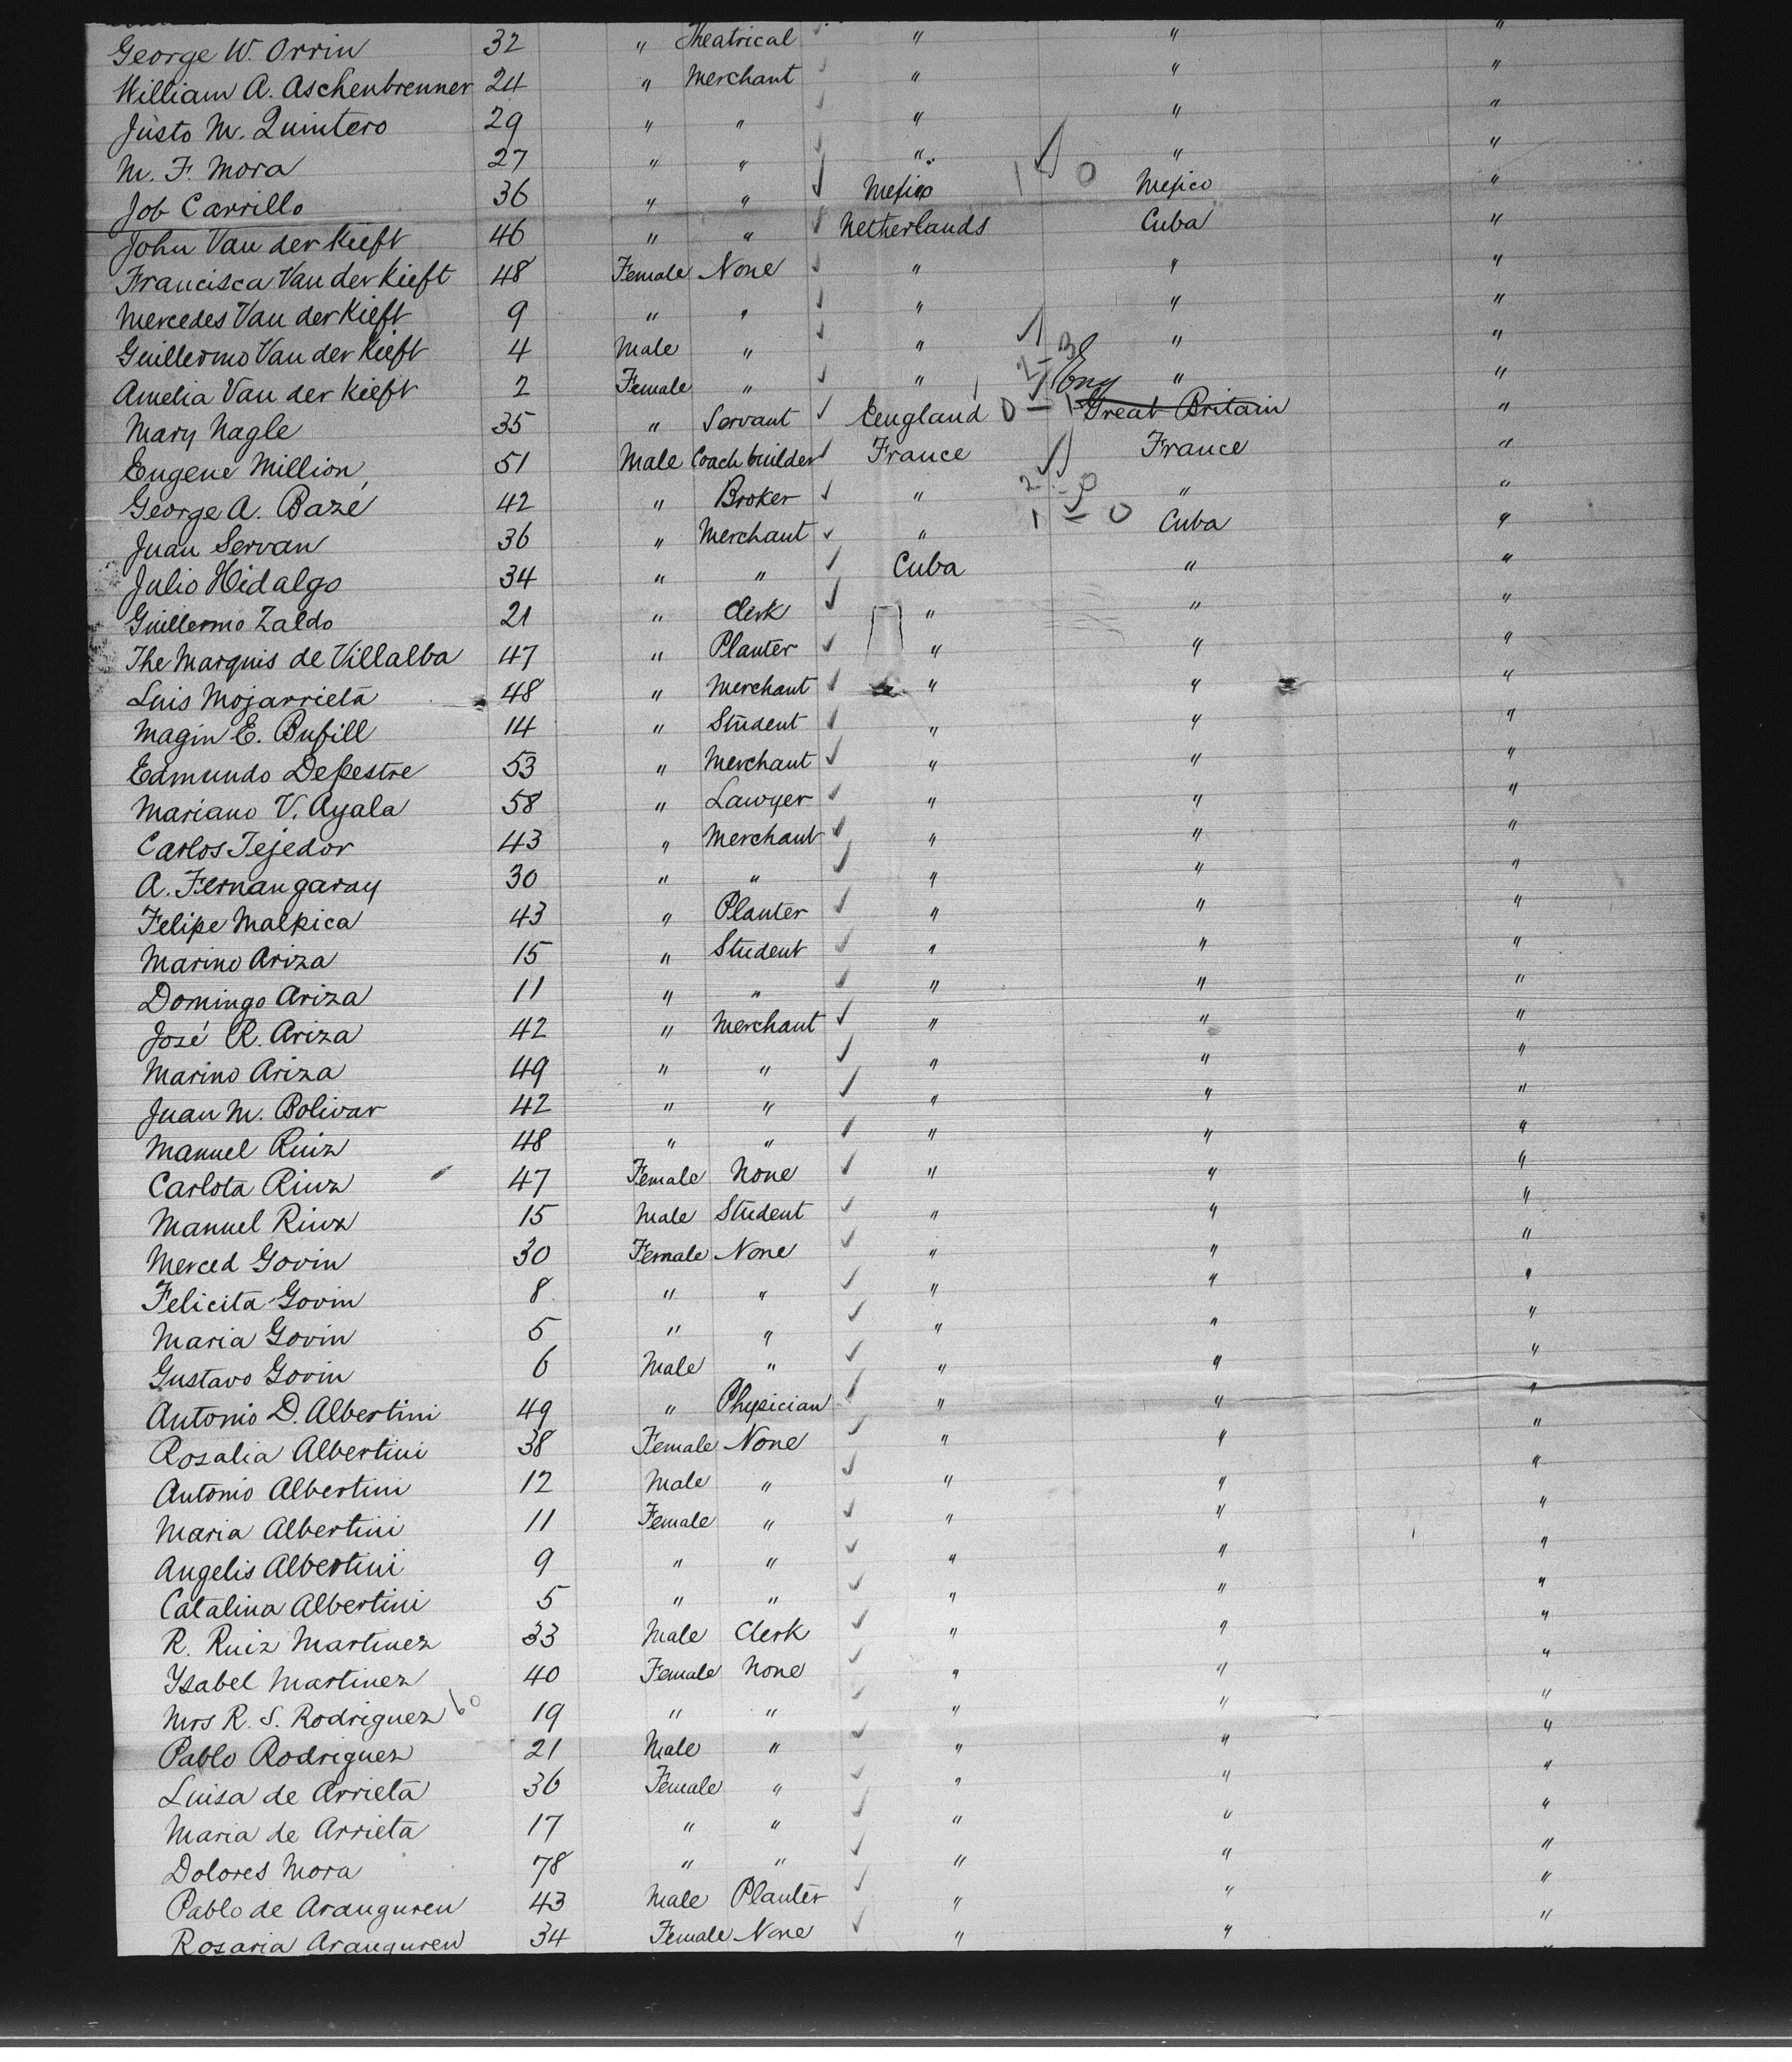 George W. Orrin 32 " Theatrical " " "
William A. Aschenbrenner 24 " Merchant " " "
Justo M. Quintero 29 " " " " "
M. F. Mora 27 " " " " "
Job Carrillo 36 " " Mexico 1 0 Mexico "
John Van der Kieft 46 " " Netherlands Cuba "
Francisca Van der Kieft 48 Female None " " "
Mercedes Van der Kieft 9 " " " " "
Guillermo Van der Kieft 4 Male " " " "
Amelia Van der Kieft 2 Female " " 2-3 Eng " "
Mary Nagle 35 " Servant Eengland 0-1 Great Britain "
Eugene Million 51 Male Coach builder France France "
George A. Bazé 42 " Broker " 2-0 " "
Juan Servan 36 " Merchant " 1-0 Cuba "
Julio Hidalgo 34 " " Cuba " "
Guillermo Zaldo 21 " Clerk " " "
The Marquis de Villalba 47 " Planter " " "
Luis Mojarrieta 48 " Merchant " " "
Magin E. Bufill 14 " Student " " "
Edmundo Depestre 53 " Merchant " " "
Mariano V. Ayala 58 " Lawyer " " "
Carlos Tejedor 43 " Merchant " " "
A. Fernangaray 30 " " " " "
Felipe Malpica 43 " Planter " " "
Marino Ariza 15 " Student " " "
Domingo Ariza 11 " " " " "
José R. Ariza 42 " Merchant " " "
Marino Ariza 49 " " " " "
Juan M. Bolivar 42 " " " " "
Manuel Ruiz 48 " " " " "
Carlota Riuz 47 Female None " " "
Manuel Riuz 15 Male Student " " "
Merced Govin 30 Female None " " "
Felicita Govin 8 " " " " "
Maria Govin 5 " " " " "
Gustavo Govin 6 Male " " " "
Antonio D. Albertini 49 " Physician " " "
Rosalia Albertini 38 Female None " " "
Antonio Albertini 12 Male " " " "
Maria Albertini 11 Female " " " "
Angelis Albertini 9 " " " " "
Catalina Albertini 5 " " " " "
R. Ruiz Martinez 33 Male Clerk " " "
Ysabel Martinez 40 Female None " " "
Mrs R. S. Rodriguez 19 " " " " "
Pablo Rodriguez 21 Male " " " "
Luisa de Arrieta 36 Female " " " "
Maria de Arrieta 17 " " " " "
Dolores Mora 78 " " " " "
Pablo de Aranguren 43 Male Planter " " "
Rosaria Aranguren 34 Female None " " "